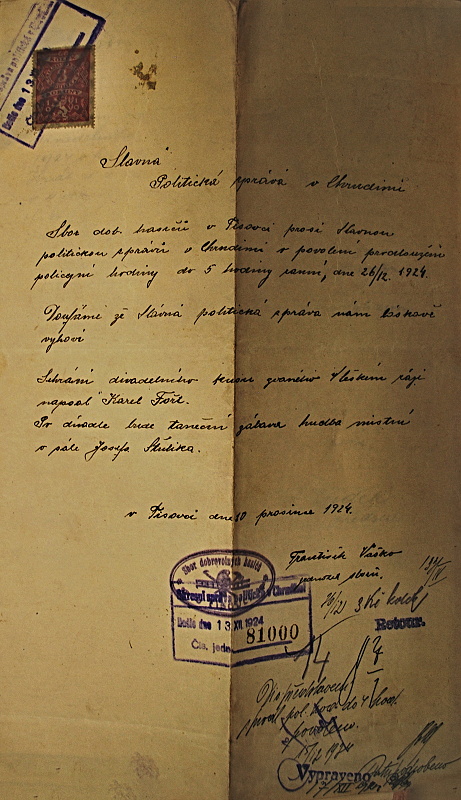 Došlo dne 13 XII
Slavná
Politická správa v Chrudimi
Sbor dob hasičů v Písovci prosí Slavnou
politickou správu v Chrudimi o povolení prodloužení
policejní hodiny do 5 hodiny ranní, dne 26/12. 1924.
Doufáme že Slavná politická správa nám láskavě
vyhoví
Sehrání divadelního kusu zvaného V českém ráji
napsal Karel Fořt.
Po divadle bude taneční zábava hudba místní
v sále Josefa Štulika.
v Písovci dne 10 prosince 1924.
František Vaško
Sbor dobrovolných hasičů
Okresní správa politická v Chrudimi
Došlo dne 13 XII 1924
Čís. jedn. 81000
3 Kč kolek
Retour.
14
pol. hod. do 4 hod.
povoleno.
12 1924
Vypraveno
17/XII